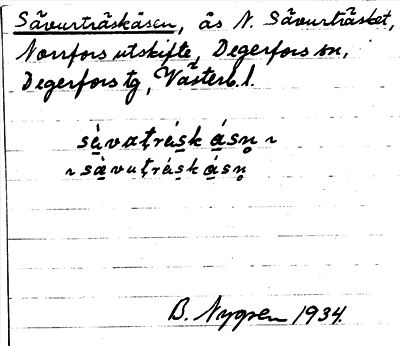 Sävurträskåsen, ås N. Sävurträsket,
Norrfors utskifte, Degerfors sn,
Degerfors tg, Västerb. l.
sàvatrásk ásn̥ ~
~ sàvutrásk ásn̥
B. Nygren 1934.